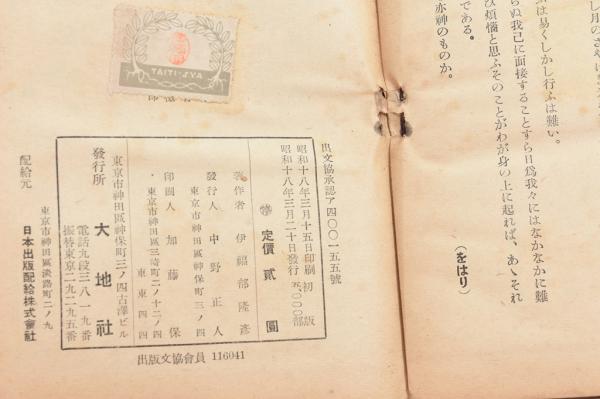 し月のさやけき
は易くしかし行ふは難い。
らぬ我己に面接することすら日爲我々にはなかなかに難
び煩惱と思ふそのことがわが身の上に起れば、あゝそれ
である。
亦神のものか。
(をはり)
TAITI-SYA
出文協承認ア四〇〇一五五號
昭和十八年三月十五日印刷 初版
昭和十八年三月二十日發行 五、〇〇〇部
定價貳圓
著作者 伊福部隆彦
東京市神田區神保町三ノ四
發行人 中野正人
東京市神田區三崎町二ノ十二ノ四
印刷人 加藤保
東東四四
東京市神田區神保町三ノ四古澤ビル
發行所 大地社
電話九段三八一九番
振替東京二九二九五番
配給元
東京市神田區淡路町二ノ九
日本出版配給株式會社
出版文協會員 116041